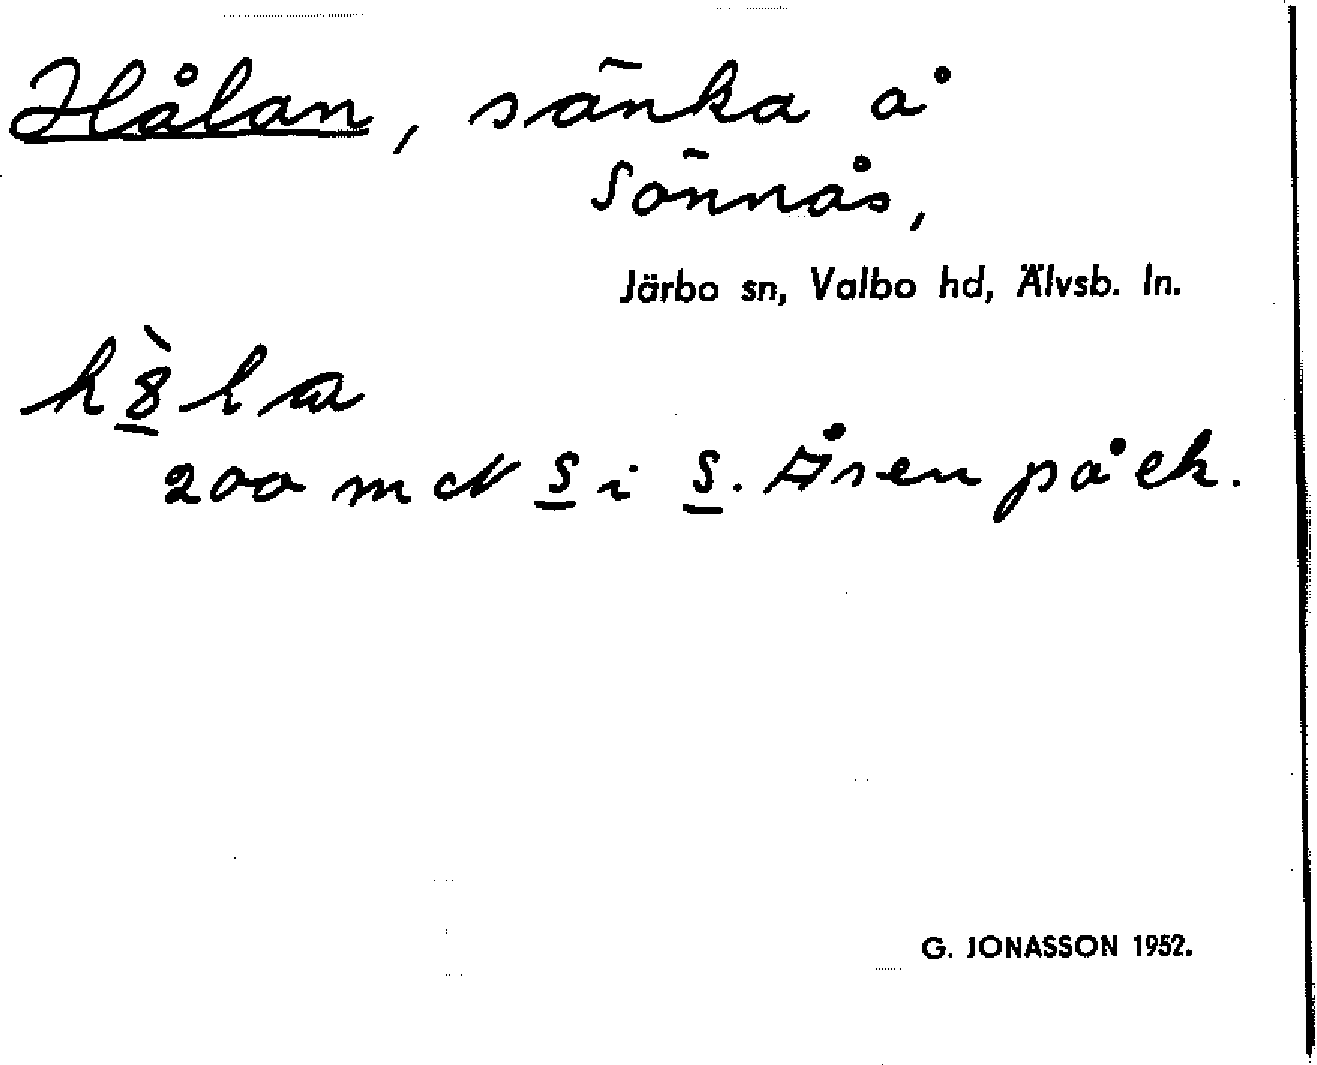 Hålan, sänka å
Sönnås,
Järbo sn, Valbo hd, Älvsb. ln.
200 m N S i S. Åsen på ek.
G. JONASSON 1952.